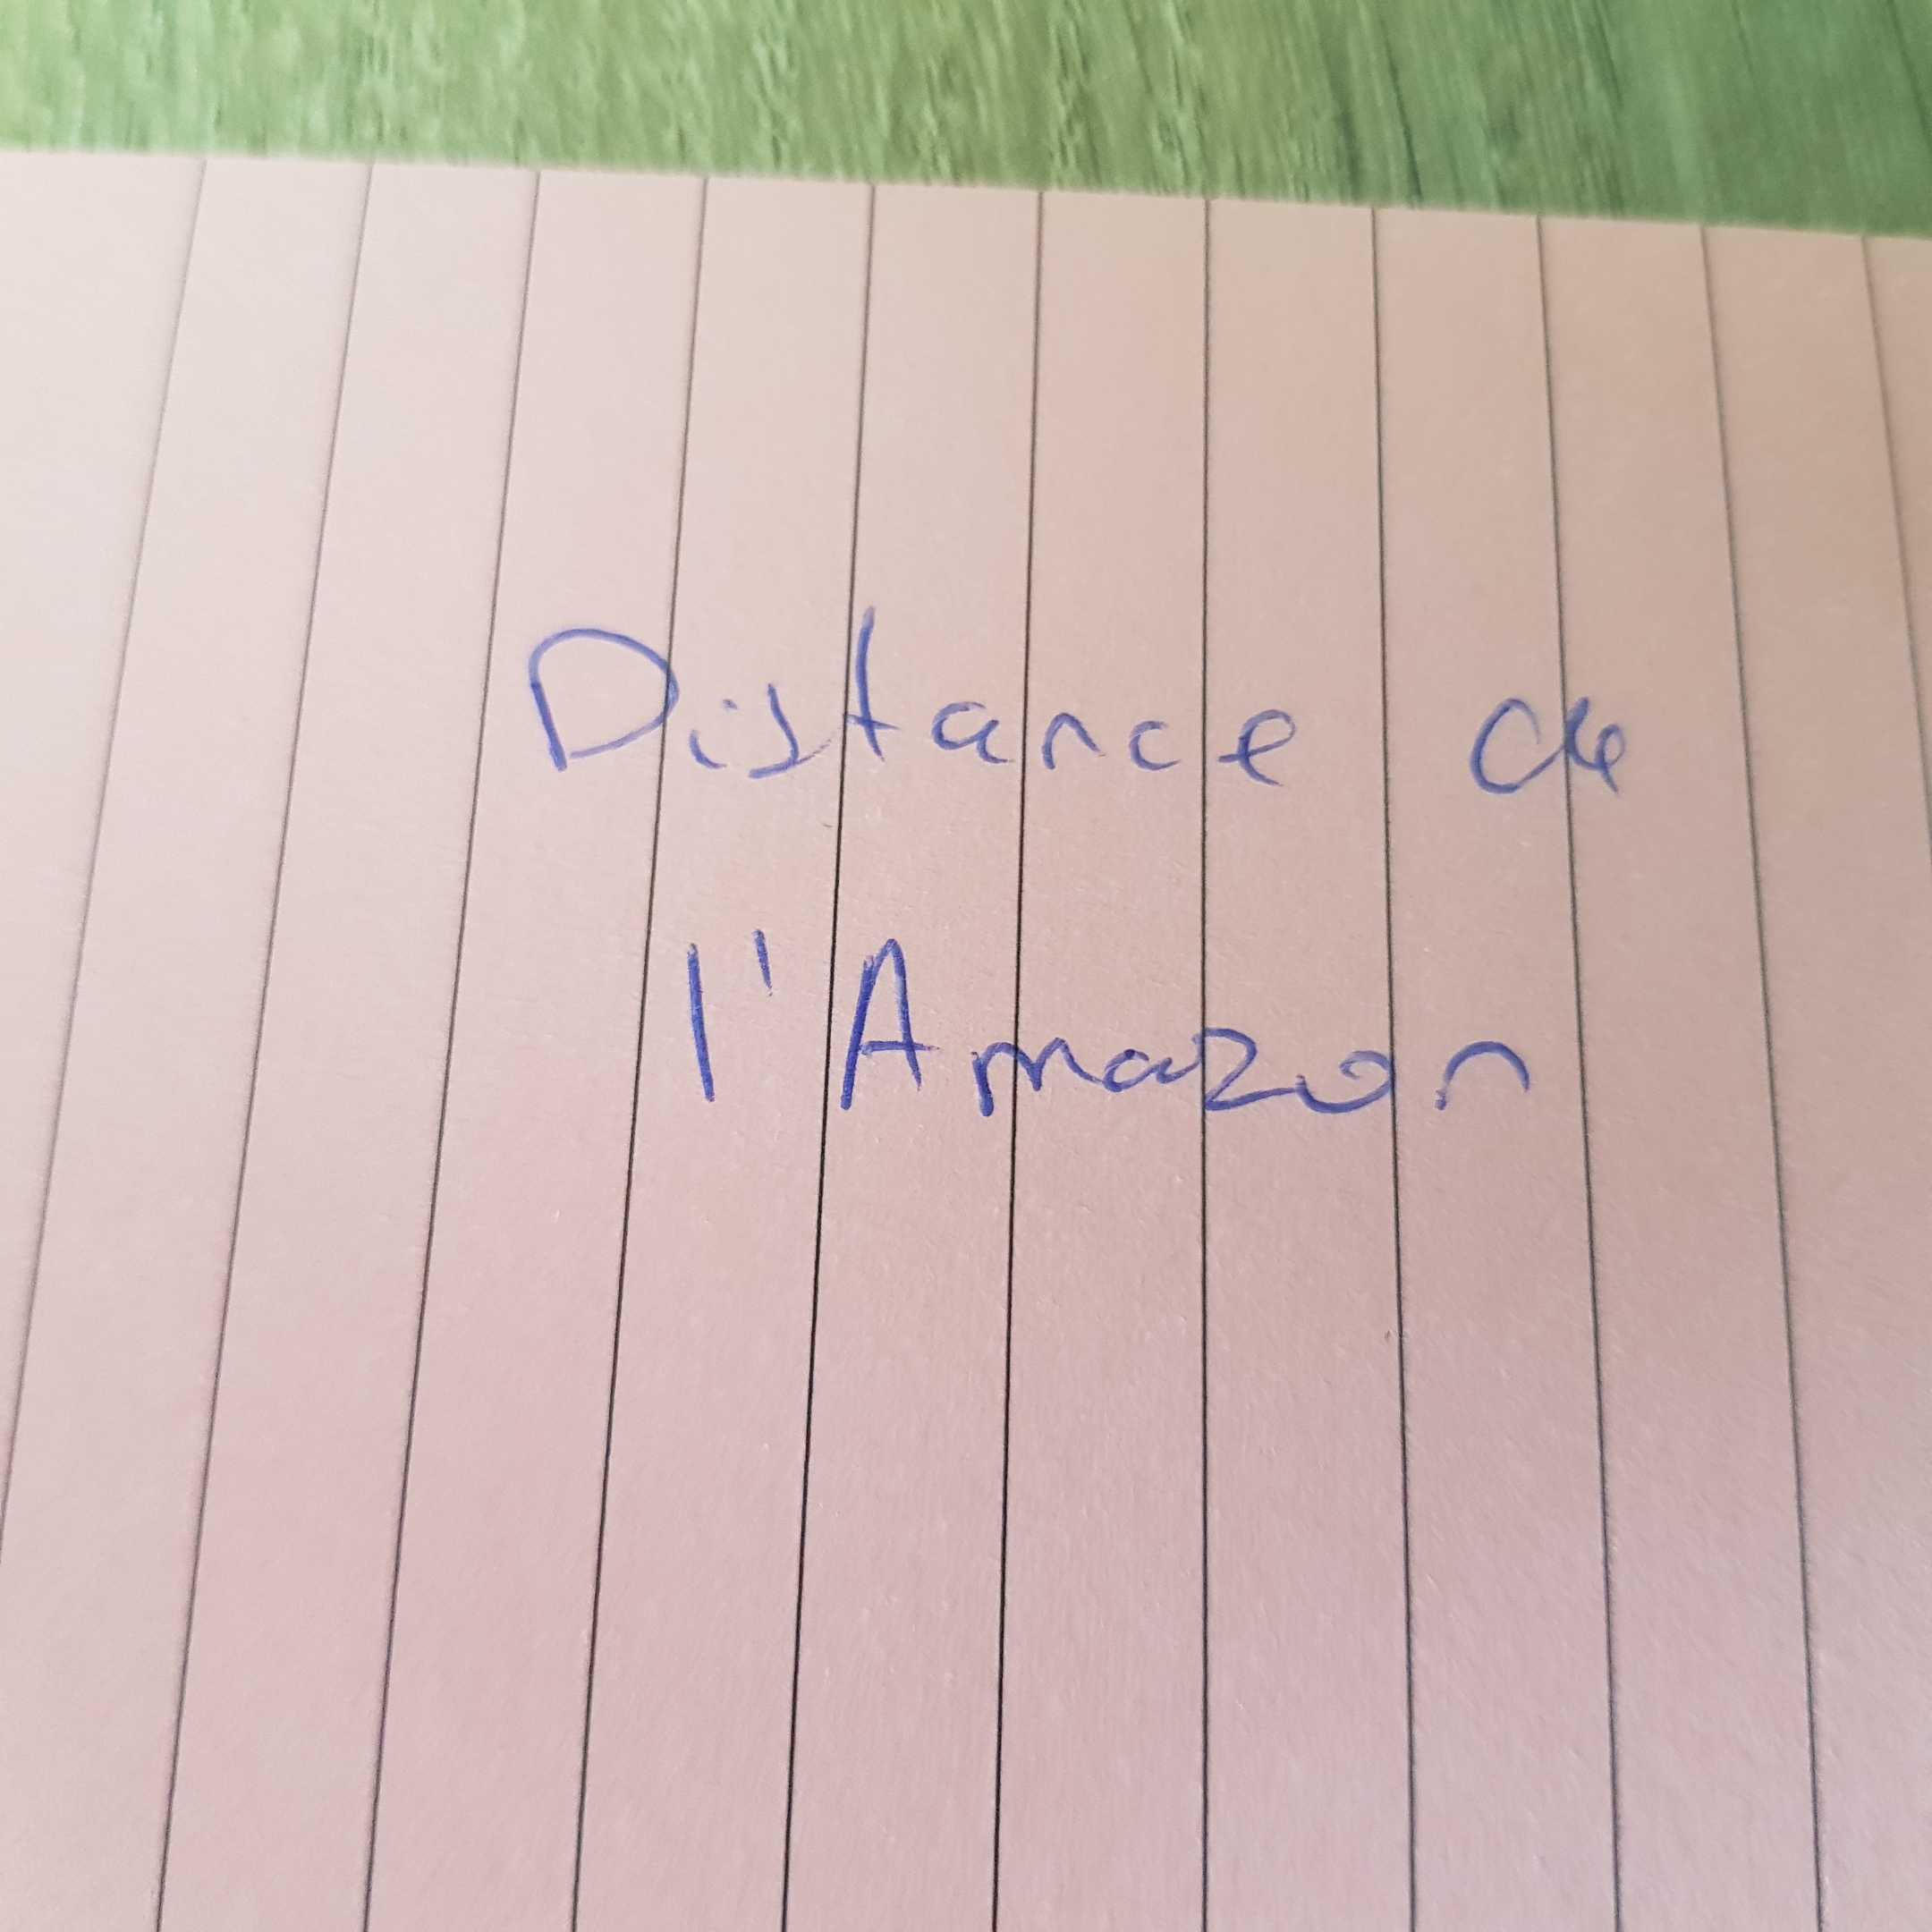 Distance de
l'Amazon